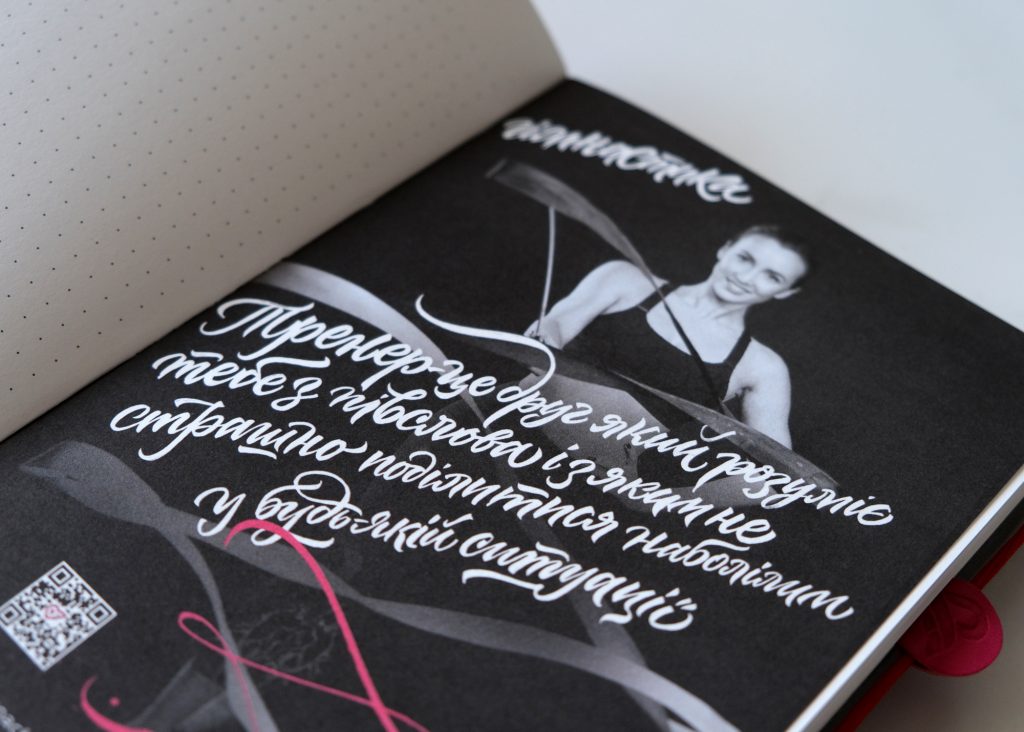 гімнастика
Тренер-це друг який розуміє
тебе з півслова і з яким не
страшно поділитися наболілим
у будь-якій ситуації